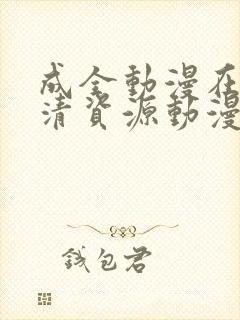 成全動漫在
清資源動漫
錢包君